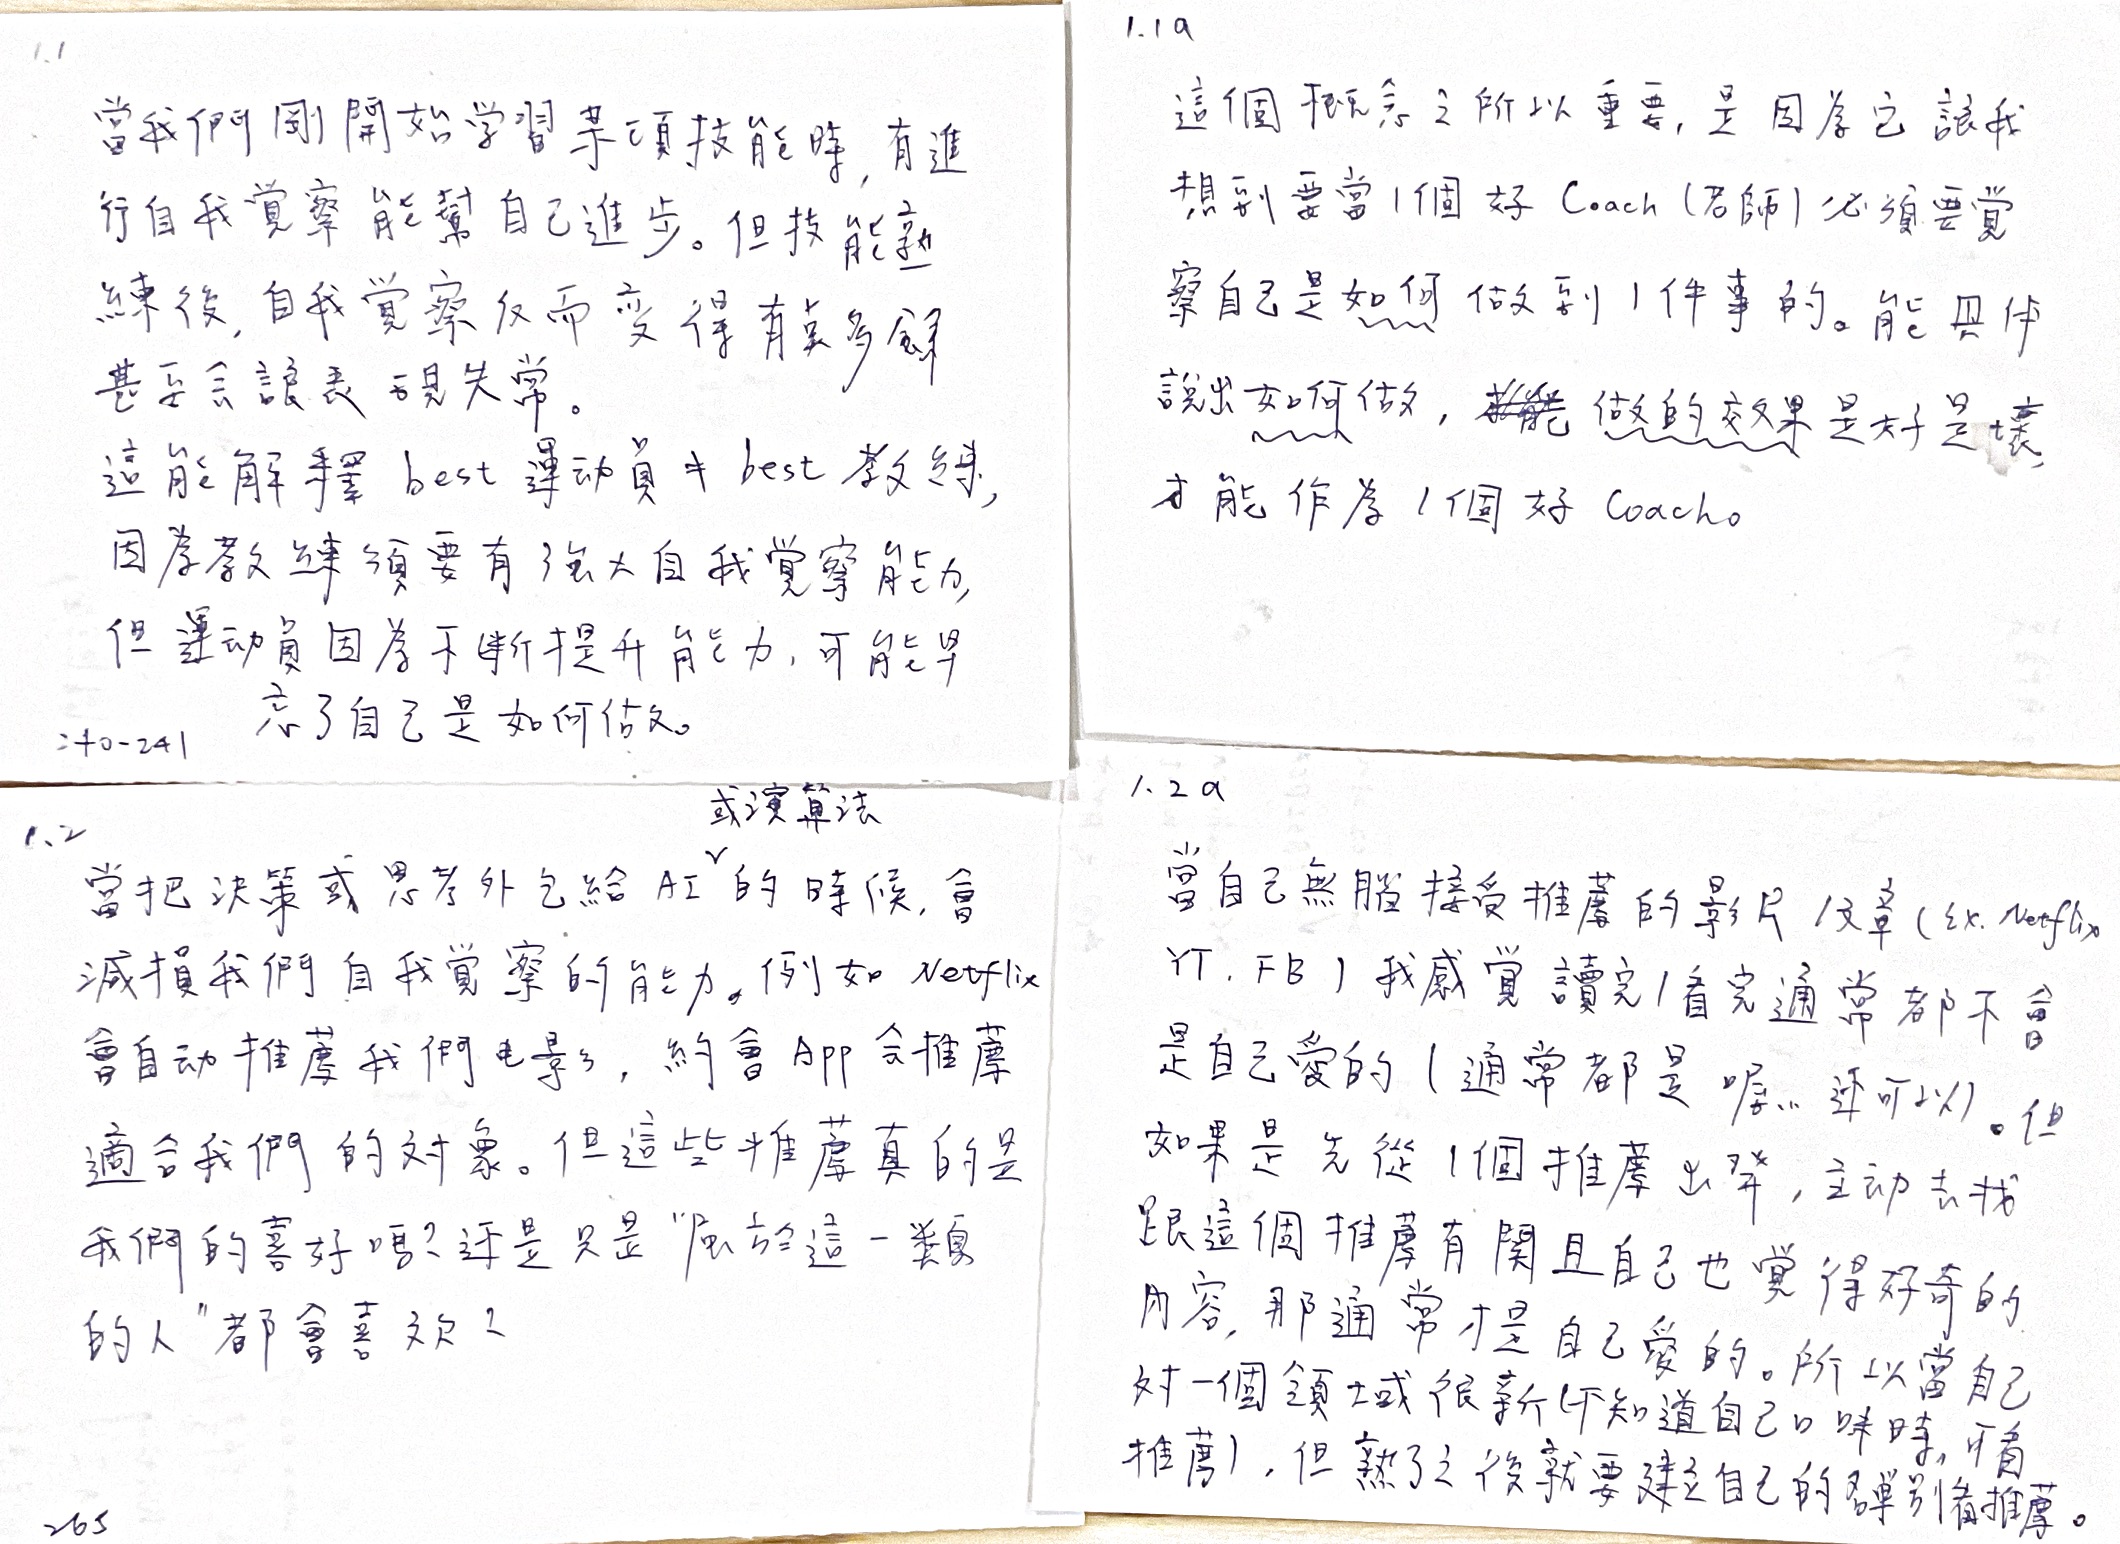 1.1
當我們剛開始学習某項技能時,有進
行自我覚察能幫自己進步。但技能熟
練後,自我覚察反而变得有夠多餘
甚至会讓表現失常。
這能解釋 best 運动員≠best 教練,
因為教練須要有強大自我覚察能力,
但運动員因為不断提升能力,可能早
忘了自己是如何做。
240-241
1.1a
這個概念之所以重要,是因為它讓我
想到要當1個好 Coach (老師) 必須要覚
察自己是如何做到1件事的。能具体
說出如何做, 做的效果是好是壞,
才能作為1個好 Coach。
1.2
或演算法
當把決策或思考外包給AI的時候,會
減損我們自我覚察的能力。例如 Netflix
會自动推薦我們电影,約會App会推薦
適合我們的对象。但這些推薦真的是
我們的喜好嗎?还是只是"属於這一類
的人"都會喜欢?
265
1.2a
當自己無腦接受推薦的影片/文章(Ex. Netflix
YT. FB) 我感覚讀完/看完通常都不會
是自己愛的(通常都是喔… 还可以)。但
如果是先從1個推薦出発,主动去找
跟這個推薦有関且自己也覚得好奇的
內容,那通常才是自己愛的。所以當自己
对一個領域很新(不知道自己口味時,可看
推薦),但熟了之後就要建立自己的名單別看推薦。